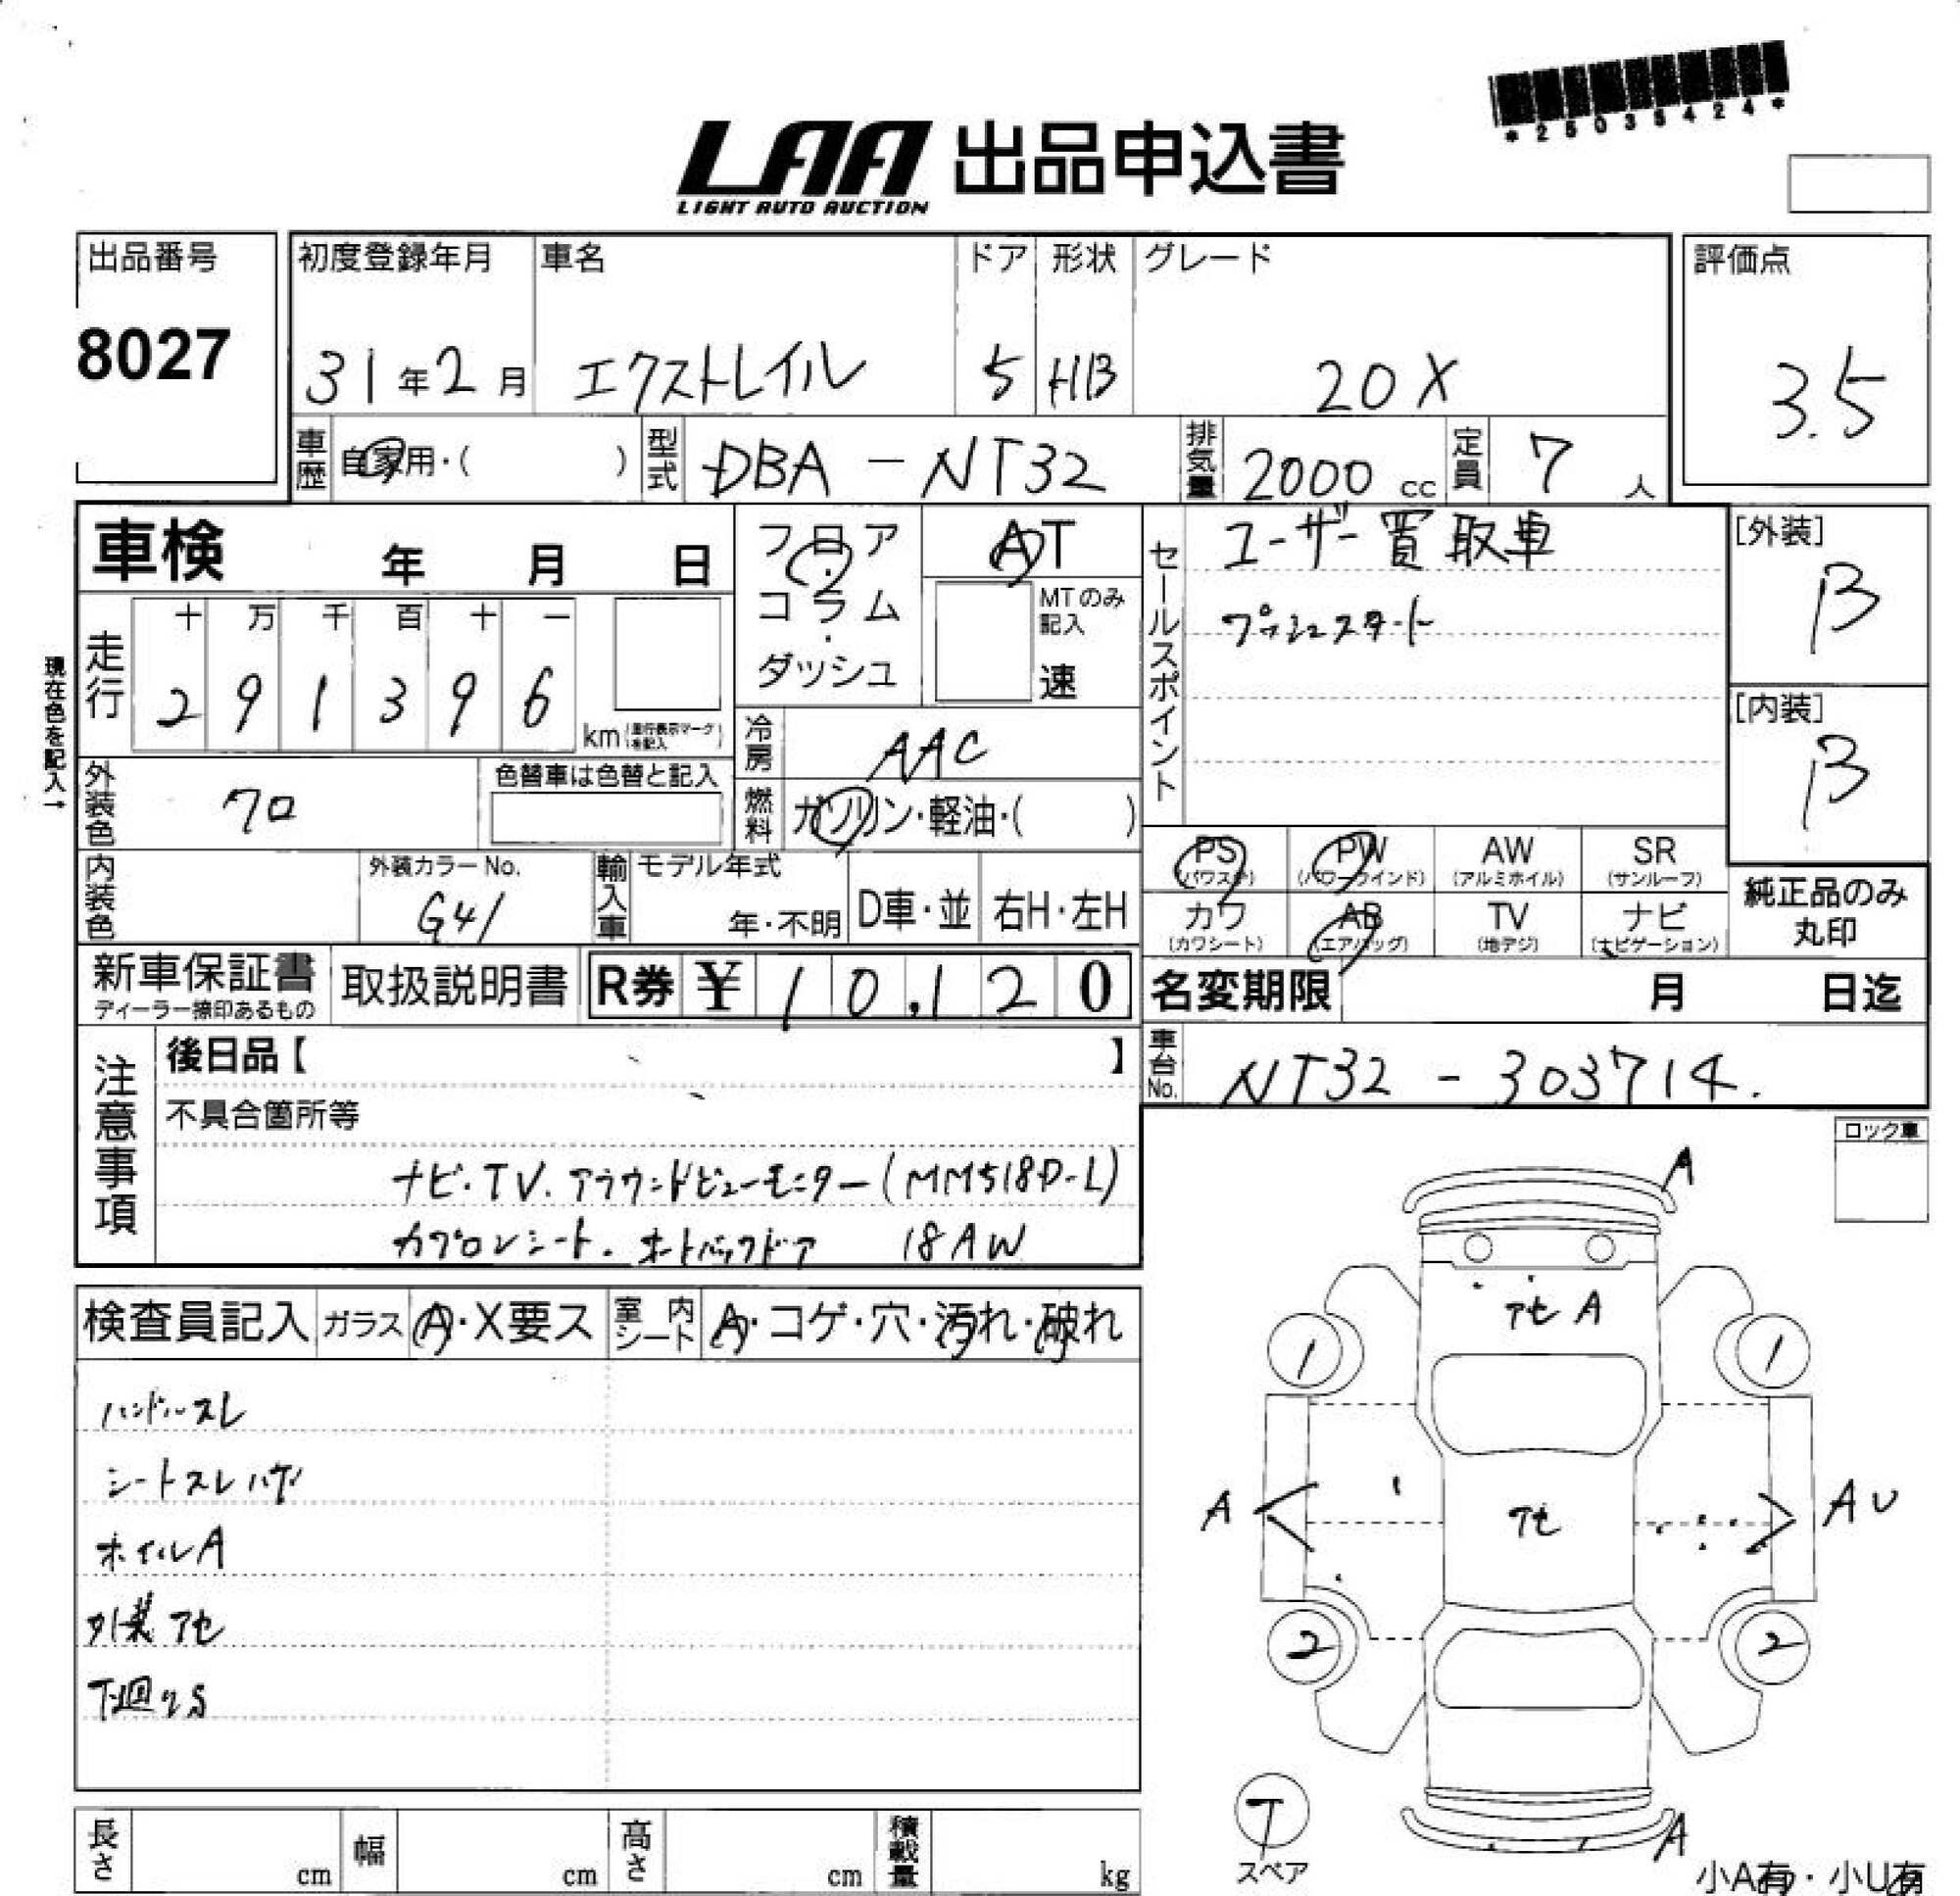 *25035424*
LAA 出品申込書
LIGHT AUTO AUCTION
出品番号
8027
初度登録年月 車名 ドア 形状 グレード
31年2月 エクストレイル 5 HB 20X
評価点
3.5
車歴 自家用・( ) 型式 DBA-NT32 排気量 2000 cc 定員 7 人
車検 年 月 日
現在色を記入→
走行 十 万 千 百 十 一
2 9 1 3 9 6 km (走行表示マークを記入)
フロア・コラム・ダッシュ
AT
MTのみ記入
速
セールスポイント
ユーザー買取車
プッシュスタート
[外装]
B
[内装]
B
冷房 AAC
燃料 ガソリン・軽油・( )
外装色 クロ
色替車は色替と記入
内装色
外装カラーNo.
G41
輸入車 モデル年式
年・不明 D車・並 右H・左H
PS (パワステ) PW (パワーウインド) AW (アルミホイル) SR (サンルーフ)
カワ (カワシート) AB (エアバッグ) TV (地デジ) ナビ (ナビゲーション)
純正品のみ
丸印
新車保証書
ディーラー捺印あるもの
取扱説明書 R券 ¥10,120
名変期限 月 日迄
車台No. NT32-303714.
注意事項
後日品【 】
不具合箇所等
ナビ・TV.アラウンドビューモニター(MM518D-L)
カプロンシート.オートバックドア 18AW
検査員記入 ガラス A・X要ス 室内シート A・コゲ・穴・汚れ・破れ
ハンドルスレ
シートスレハゲ
ホイルA
外装アセ
下廻りS
ロック車
A
アセ A
1 1
A アセ AU
2 2
T
スペア
A
小A有・小U有
長さ cm 幅 cm 高さ cm 積載量 kg